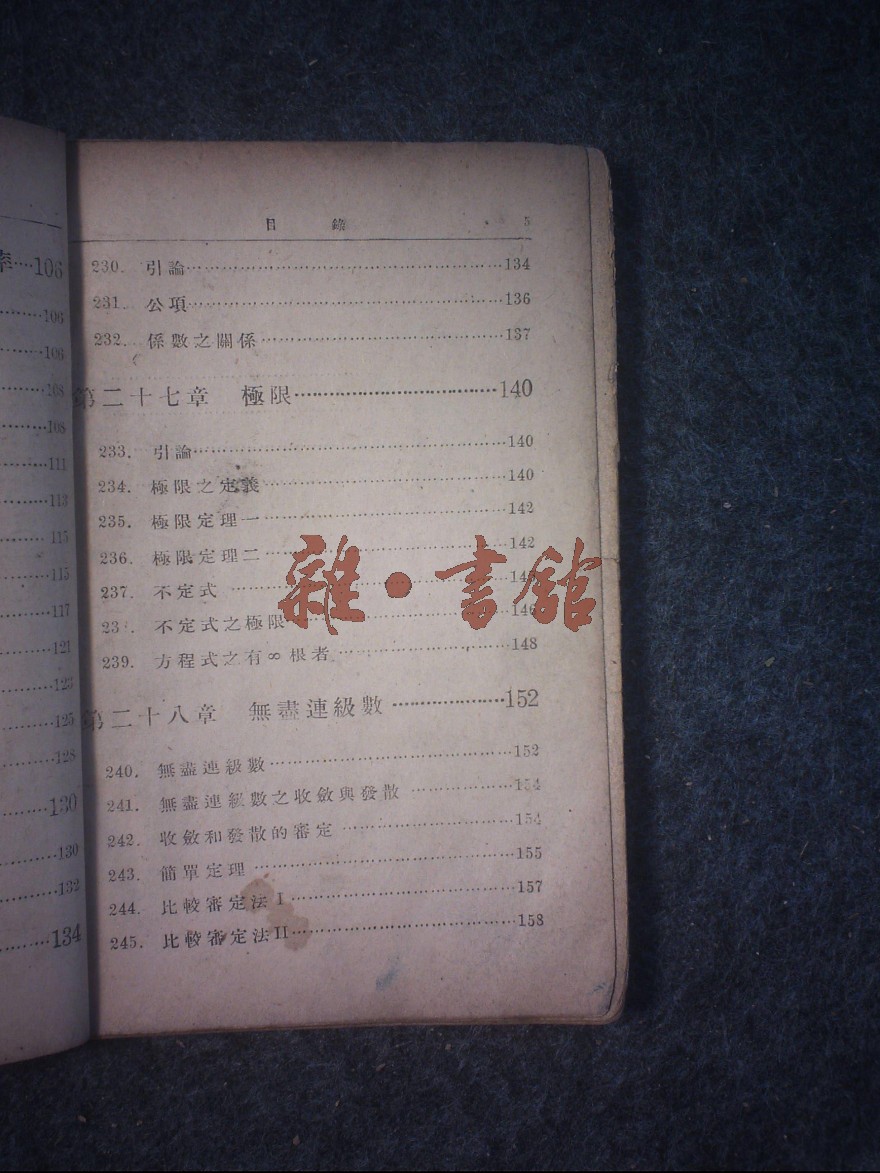 目錄 5
230. 引論 134
231. 公項 136
232. 係數之關係 137
第二十七章 極限 140
233. 引論 140
234. 極限之定義 140
235. 極限定理一 142
236. 極限定理二 142
237. 不定式
不定式之極限 146
239. 方程式之有∞根者 148
第二十八章 無盡連級數 152
240. 無盡連級數 152
241. 無盡連級數之收斂與發散 154
242. 收斂和發散的審定 154
243. 簡單定理 155
244. 比較審定法I 157
245. 比較審定法II 158
雜·書館
率 106
106
106
108
108
111
113
115
115
117
121
123
125
128
130
130
132
134